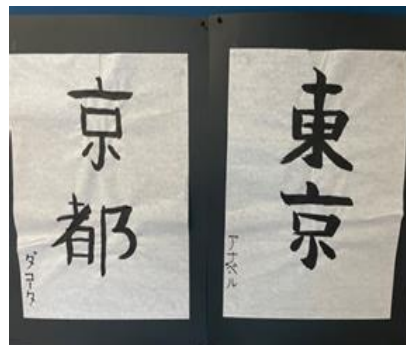 京都
ダコタ
東京
アナベル